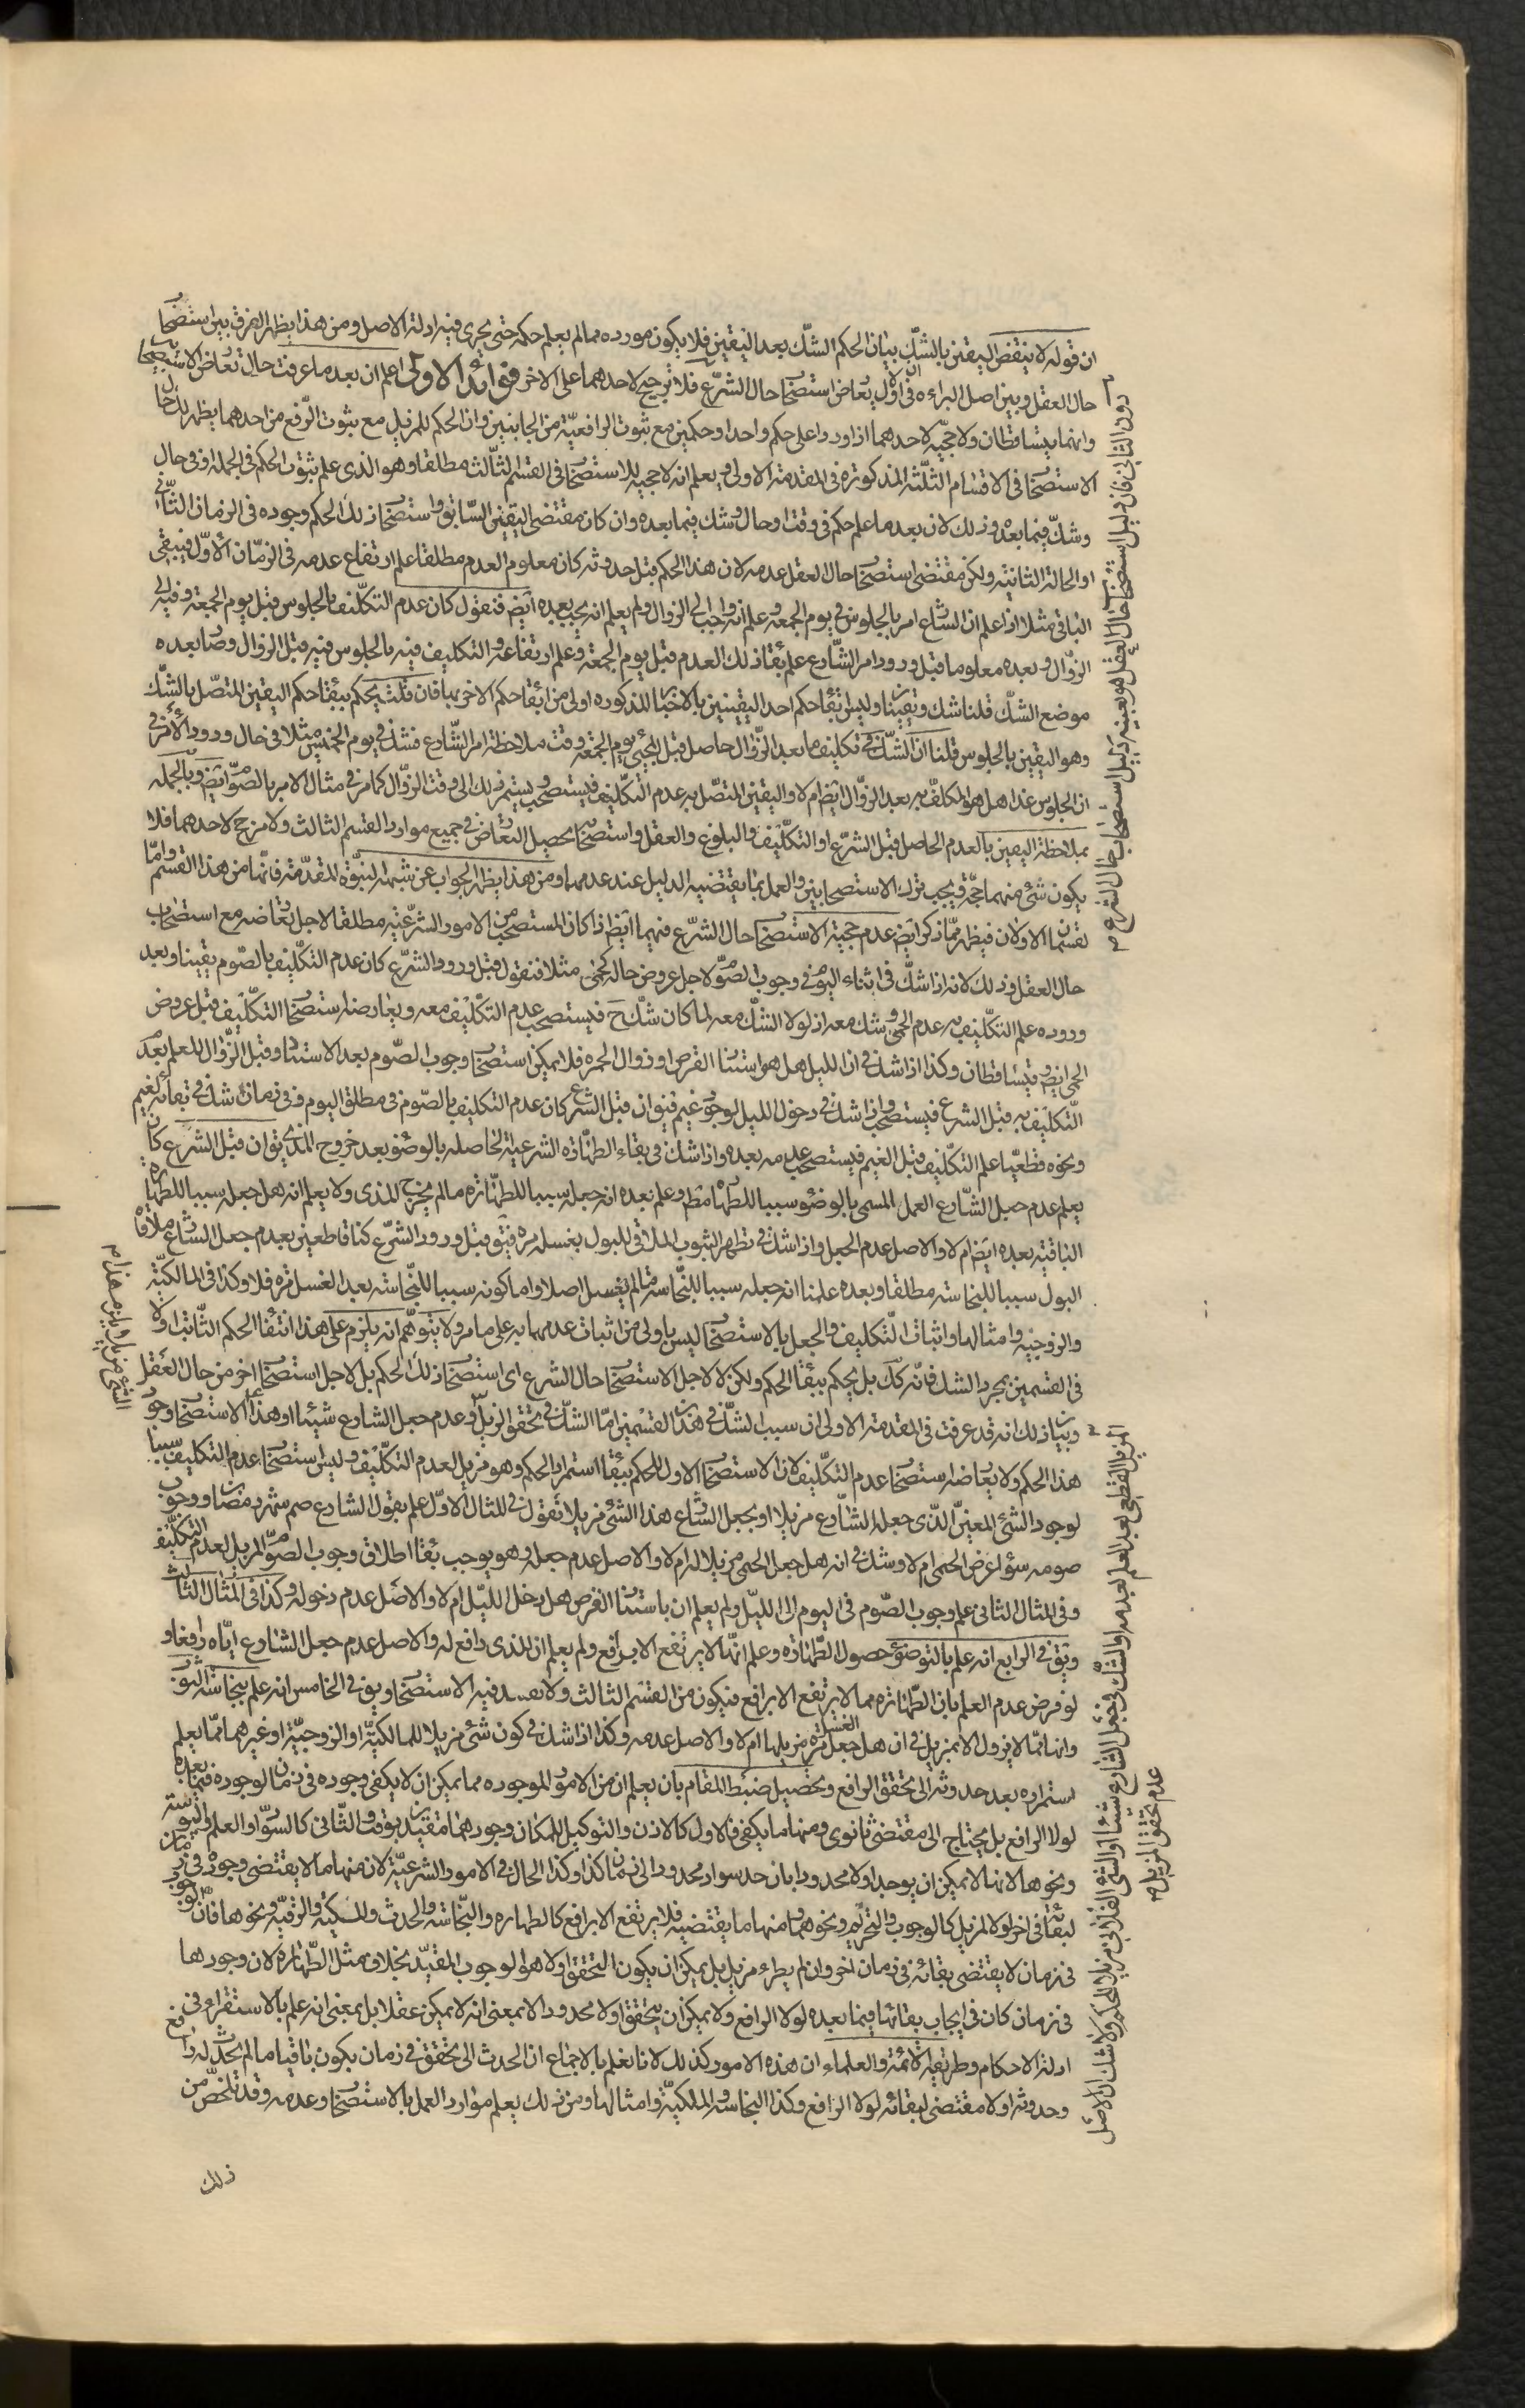 ان قوله لا ينقض اليقين بالشك بيان الحكم الشك بعد اليقين فلا يكون مورده مما لم يعلم حكمه حتى يجرى فيه ادلة الاصل ومن هذا يظهر الفرق بين استصحاب
حال العقل وبين اصل البراءه فى ان الاول يعارض استصحاب حال الشرع فلا ترجيح لاحدهما على الاخر فوائد الاولى اعلم ان بعد ما عرفت حال تعارض الاستصحابين
وانهما يتساقطان ولا حجيه لاحدهما اذا وردا على حكم واحد او حكمين مع ثبوت الرافعيّة من الجانبين وان الحكم للمزيل مع ثبوت الرفع من احدهما يظهر لك حال
الاستصحاب فى الاقسام الثلثه المذكورة فى المقدمة الاولى ويعلم انه لا حجيه للاستصحاب فى القسم الثالث مطلقا وهو الذى علم ثبوت الحكم فى الجملة او فى حال
وشك فيما بعده وذلك لان بعد ما علم حكم فى وقت او حال وشك فيما بعده وان كان مقتضى اليقين السابق واستصحاب ذلك الحكم وجوده فى الزمان الثانى
او الحالة الثانية ولكن مقتضى استصحاب حال العقل عدمه لان هذا الحكم قبل حدوثه كان معلوم العدم مطلقا علم ارتفاع عدمه فى الزمان الاول فيبقى
الباقى مثلا اذا علم ان الشارع امر بالجلوس فى يوم الجمعه وعلم انه واجب الى الزوال ولم يعلم انه يجب بعده ايض فنقول كان عدم التكليف بالجلوس قبل يوم الجمعة وفيه الى
الزوال وبعده معلوما قبل ورود امر الشارع علم بقاء ذلك العدم قبل يوم الجمعة وعلم ارتفاعه والتكليف فيه بالجلوس فيه قبل الزوال وصار بعده
موضع الشك فلنا شك ويقينان وليس ابقاء حكم احد اليقينين بالاخبار المذكوره اولى من ابقاء حكم الاخر بها فان قلت يحكم ببقاء حكم اليقين المتصل بالشك
وهو اليقين بالجلوس قلنا ان الشك فى تكليف ما بعد الزوال حاصل قبل المجيئ يوم الجمعة وقت ملاحظة امر الشارع فشك فى يوم الخميس مثلا فى حال ورود الامر فى
ان الجلوس غدا هل هو المكلف به بعد الزوال ايض ام لا واليقين المتصل به عدم التكليف فيستصحب ويستمر ذلك الى وقت الزوال كما مر فى مثال الامر بالصوم ايض وبالجمله
بملاحظة اليقين بالعدم الحاصل قبل الشرع او التكليف والبلوغ والعقل واستصحابه يحصل التعارض فى جميع موارد القسم الثالث ولا مرجح لاحدهما فلا
يكون شئ منهما حجة فيجب ترك الاستصحابين والعمل بما يقتضيه الدليل عند عدمهما ومن هذا يظهر الجواب عن شبهة النبوة المتقدمة فانها من هذا القسم واما
لقسمان الاولان فيظهر مما ذكر ايض عدم حجية الاستصحاب حال الشرع فيهما ايض اذا كان المستصحب من الامور الشرعيه مطلقا لاجل تعارضه مع استصحاب
حال العقل وذلك لانه اذا شك فى اثناء اليوم فى وجوب الصوم لاجل عروض حاله كحمى مثلا فنقول قبل ورود الشرع كان عدم التكليف بالصوم يقينا وبعد
وروده علم التكليف به عدم الحمى وشك معه اذ لولا الشك معه لما كان شك ح فيستصحب عدم التكليف معه ويعارضه استصحاب التكليف قبل عروض
الحمى ايض ويتساقطان وكذا اذا شك فى ان الليل هل هو استتار القرص او زوال الحمره فلا يمكن استصحاب وجوب الصوم بعد الاستتار وقبل الزوال للعلم بعدم
التكليف به قبل الشرع فيستصحب واذا شك فى دخول الليل لوجود غيم فنق ان قبل الشرع كان عدم التكليف بالصوم فى مطلق اليوم وفى زمان شك فى بقائه لغيم
ونحوه قطعيا علم التكليف قبل الغيم فيستصحب عدمه بعده واذا شك فى بقاء الطهارة الشرعية الحاصله بالوضوء بعد خروج المذى يق ان قبل الشرع كان
يعلم عدم جعل الشارع العمل المسمى بالوضوء سببا للطهارة مط وعلم بعده انه جعله سببا للطهارة ما لم يخرج المذى ولا يعلم انه هل جعله سببا للطهارة
الباقية بعده ايض ام لا والاصل عدم الجعل واذا شك فى تطهر الثوب الملاقى للبول بغسله مره فيق قبل ورود الشرع كنا قاطعين بعدم جعل الشارع ملاقاة
البول سببا للنجاسة مطلقا وبعده علمنا انه جعله سببا للنجاسة ما لم يغسل اصلا واما كونه سببا للنجاسة بعد الغسل مره فلا وكذا فى المالكية
والزوجية وامثالها واثبات التكليف والجعل بالاستصحاب ليس باولى من اثبات عدمهما به على ما مر ولا يتوهم انه يلزم على هذا انتفاء الحكم الثابت اولا
فى القسمين بمجرد الشك فانه ليس كك بل يحكم ببقاء الحكم ولكن لا لاجل الاستصحاب حال الشرع اى استصحاب ذلك الحكم بل لاجل استصحاب اخر من حال العقل
وبيان ذلك انه قد عرفت فى المقدمة الاولى ان سبب الشك فى هذين القسمين اما الشك فى تحقق المزيل وعدم جعل الشارع شيئا او هذا الاستصحاب وجود
هذا الحكم ولا يعارضه استصحاب عدم التكليف لان الاستصحاب الاول للحكم ببقاء استمرار الحكم وهو مزيل لعدم التكليف وليس استصحاب عدم التكليف سببا
لوجود الشئ المعين الذى جعله الشارع مزيلا او بجعل الشارع هذا الشئ مزيلا تقول فى المثال الاول علم بقول الشارع صم شهر رمضان ووجوب
صومه سواء عرض الحمى ام لا وشك فى انه هل جعل الحمى مزيلا له ام لا والاصل عدم جعله وهو يوجب بقاء اطلاق وجوب الصوم المزيل لعدم التكليف
وفى المثال الثانى علم وجوب الصوم فى اليوم الى الليل ولم يعلم ان باستتار القرص هل دخل الليل ام لا والاصل عدم دخوله وكذا فى المثال الثالث
ويق فى الرابع انه علم بالتوضؤ حصول الطهارة وعلم انها لا يرتفع الا برافع ولم يعلم ان المذى رافع له والاصل عدم جعل الشارع اياه رافعا و
لو فرض عدم العلم بان الطهارة مما لا يرتفع الا برافع فيكون من القسم الثالث ولا فيه الاستصحاب ويق فى الخامس انه علم بنجاسة الثوب
وانها مما لا يزول الا بمزيل فى ان هل جعل الغسل مرة مزيلها ام لا والاصل عدمه وكذا اذا شك فى كون شئ مزيلا للمالكية او الزوجية او غيرهما مما يعلم
استمراره بعد حدوثه الى تحقق الرافع وتحصيل ضبط المقام بان يعلم ان من الامور الموجوده مما يمكن ان لا يكفى وجوده فى زمان لوجوده فيما بعده
لولا الرافع بل يحتاج الى مقتضى ثانوى ومنها ما يكفى فالاول كالاذن والتوكيل للمكان وجودهما مقيدين بوقت والثانى كالسواد والعلم واليبوسة
ونحوها لانها لا يمكن ان يوجد اولا محدودا بان حد سواد محدودا الى زمان كذا وكذا الحال فى الامور الشرعية لان منها ما لا يقتضى وجوده فى زمان
لبقائه فى اخر لولا المزيل كالوجوب والتحريم ونحوهما ومنها ما يقتضيه فلا يرتفع الا برافع كالطهاره والنجاسة والحدث والملكية والرقية ونحوها فان الوجوب
فى زمان لا يقتضى بقائه فى زمان اخر وان لم يطرء مزيل بل يمكن ان يكون التحقق اولا هو الوجوب المقيد بخلاف مثل الطهارة لان وجودها
فى زمان كان فى ايجاب بقائها فيما بعده لولا الرافع ولا يمكن ان يتحقق اولا محدودا لا بمعنى انه لا يمكن عقلا بل بمعنى انه علم بالاستقراء فى
ادلة الاحكام وطريقة الائمة والعلماء ان هذه الامور كذلك لانا نعلم بالاجماع ان الحدث الى تحقق فى زمان يكون باقيا ما لم يحدث له رافع
وحدوثه اولا مقتضى لبقائه لولا الرافع وكذا النجاسة والملكية وامثالها ومن ذلك يعلم موارد العمل بالاستصحاب وعدمه وقد تلخص من
ذلك
دون الثانى فان دليل استصحاب حال العقل هو بعينه دليل استصحاب حال الشرع م
المزيل القطعى بعد العلم بعدمه او الشك فى جعل الشارع شيئا او الشئ الفلانى مزيلا للحكم ولا شك ان الاصل
عدم تحقق المزيل م